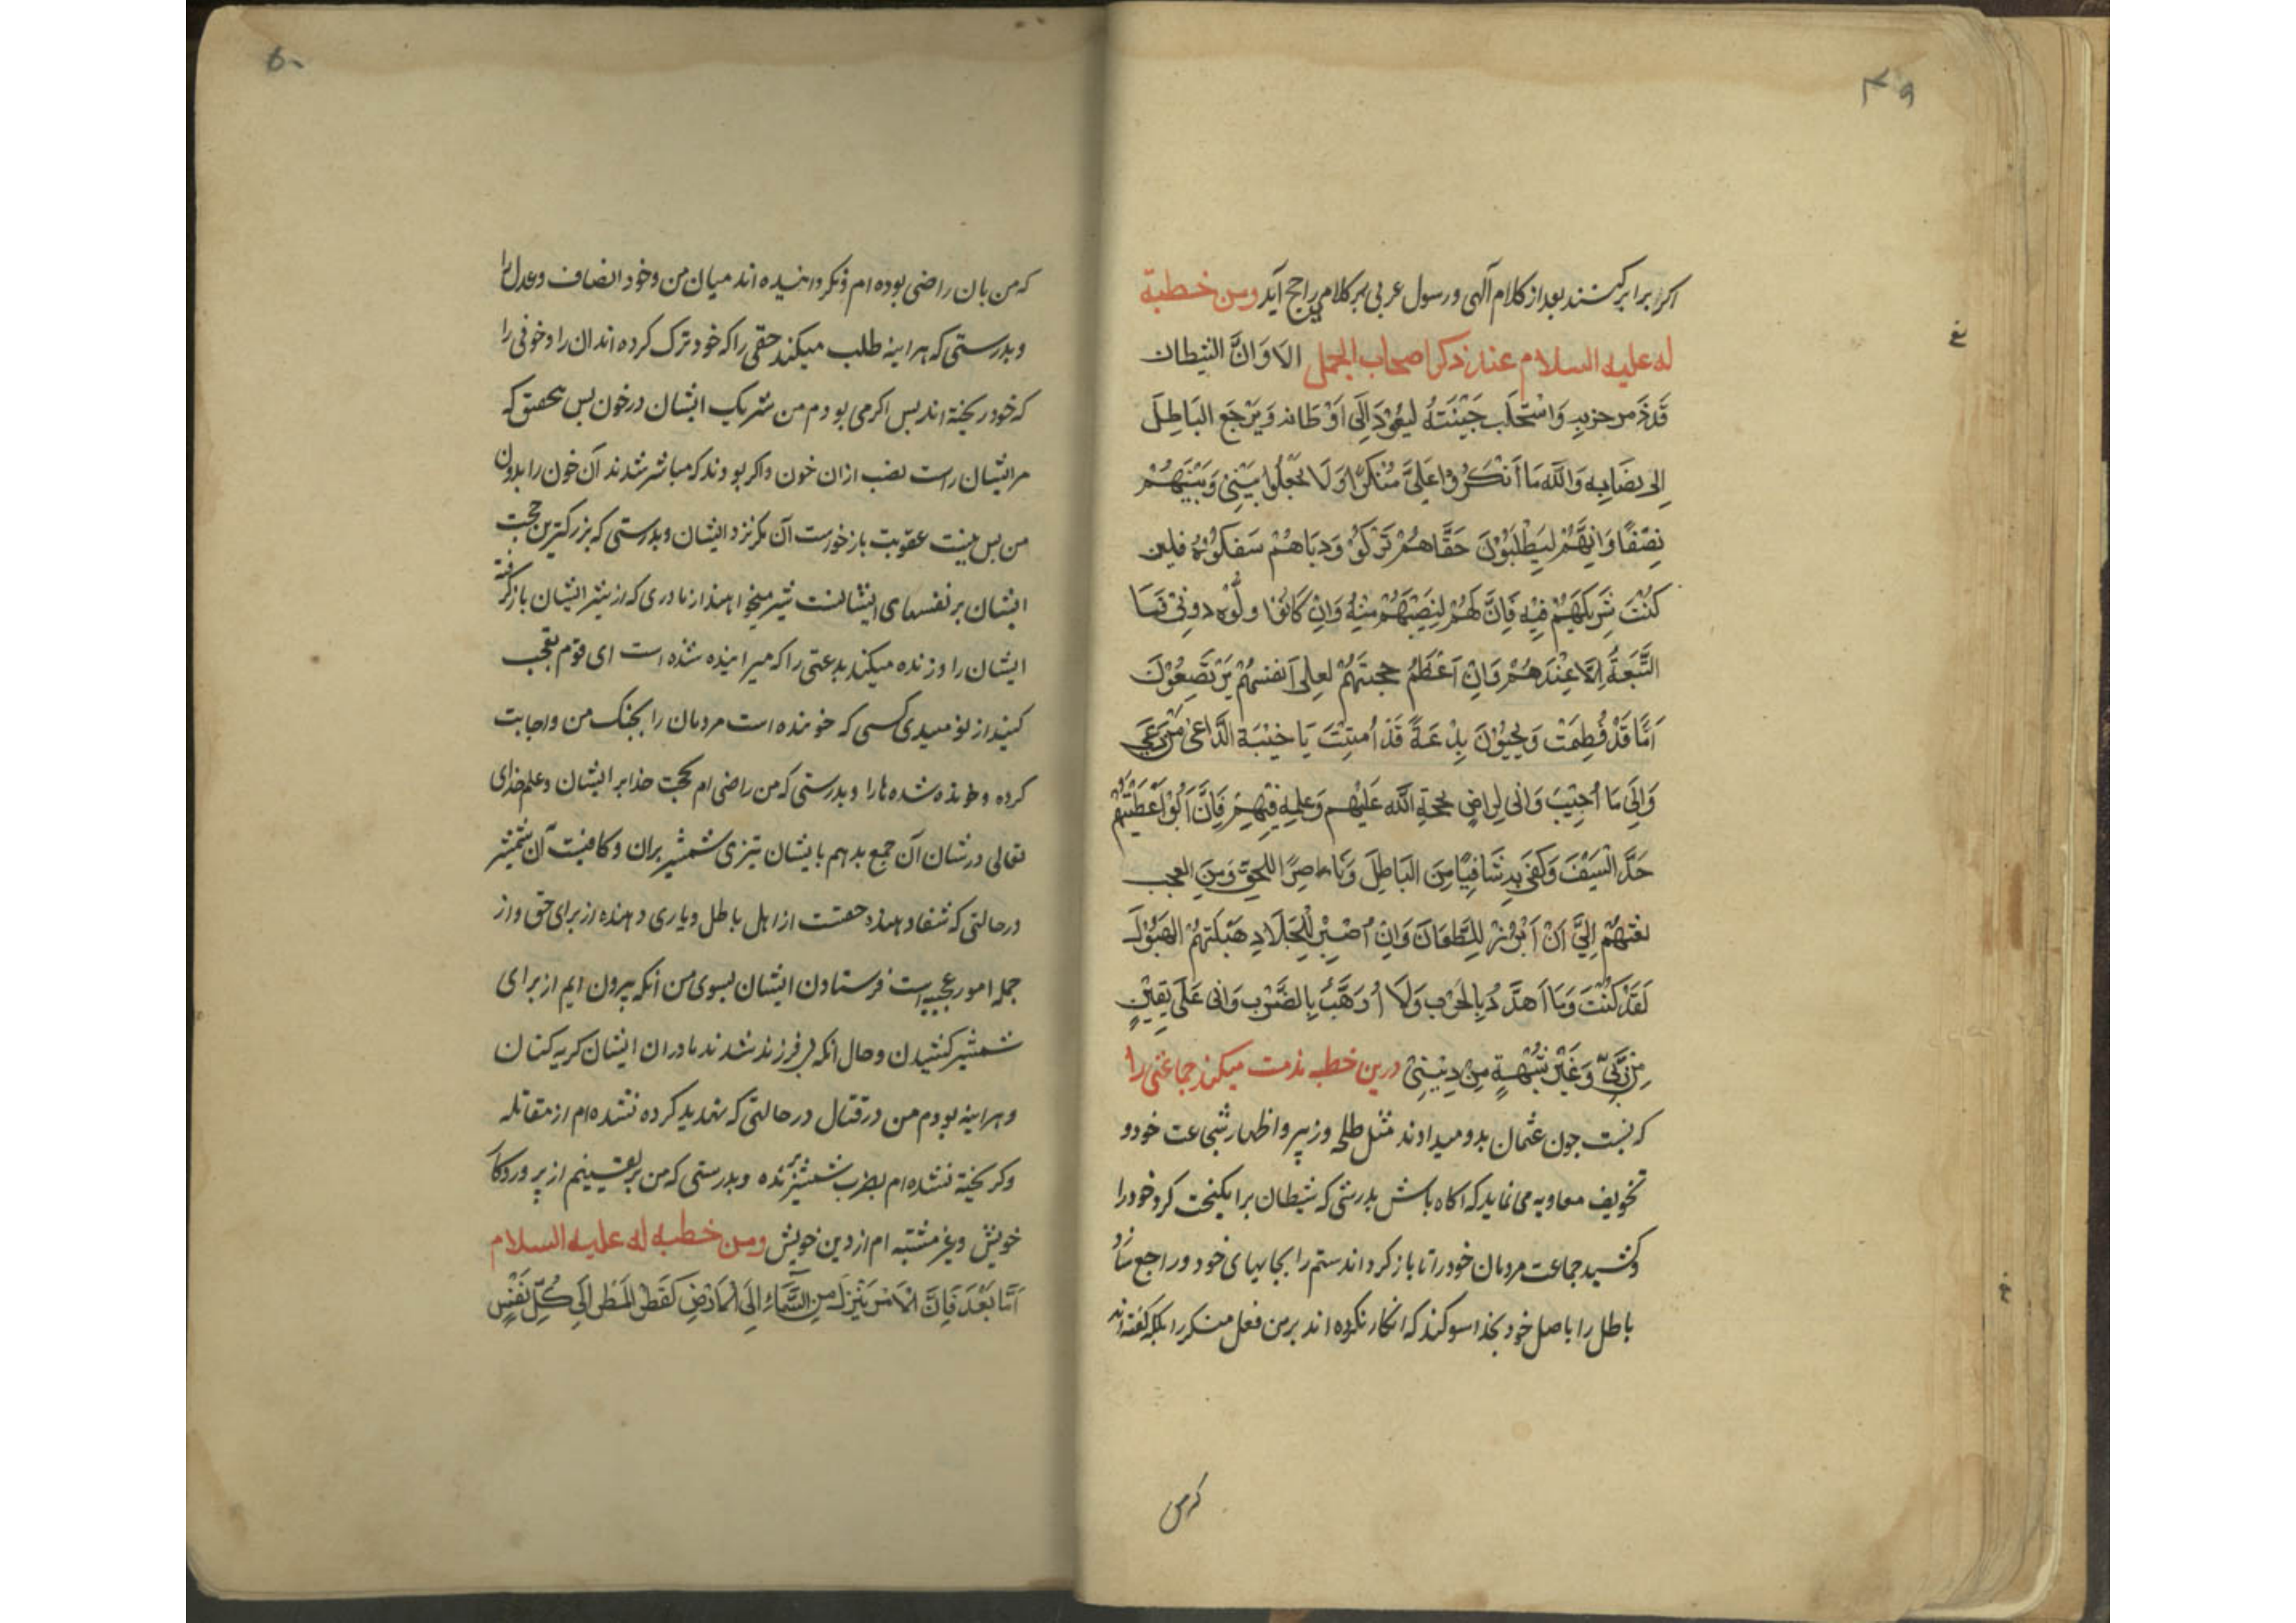 ۴۹
اکر برابر کنند بعد از کلام آلهی و رسول عربی بر کلامی راجح آید ومن خطبة
له علیه السلام عند ذکر اصحاب الجمل الا وَانَّ الشیطان
قَدذَمر حزبه وَاسْتَحلَب جَیْشَتَهُ لیعُوْدَ اِلَی اَوْطَانه وَیَرْجَع البَاطِلَ
اِلی نصَابِه وَاللّه مَا اَنْکَرُوا عَلیَّ مُنْکَرًا وَلَا جَعَلُوا بَیْنِیْ وَبَیْنَهُمْ
نِصْفًا وَاِنَّهُمْ لیَطْلبُوْنَ حَقَّا هُمْ تَرَکُوْ وَدِمَاهُمْ سَفَکُوْهُ فلین
کُنْتُ شَرِیکَهُمْ فِیْهِ فَاِنَّ لَهُمْ لِنَصِیْبَهُمْ مِنْهُ وَاِنْ کَانُوْا ولّوْه دونِیْ فَمَا
التَّبَعَةُ اِلَّا عِنْدَهُمْ وَاِنَّ اَعْظَمُ حجتهُمْ لَعلی اَنفسهُمْ یَرْتَضِعُوْنَ
اُمًّا قَدْ فُطِمَتْ وَیُحْیُوْنَ بِدْعَةً قَدْ اُمِیْتَتْ یَا خَیْبَةَ الدَّاعیْ مَنْ دَعَی
وَاِلَی مَا اُجِیْبَ وَانی لِراضِی بحجَّةِ اللّه عَلَیْهِم وَعِلمِه فِیْهِمْ فَاِنَّ اَبَوْا اَعْطَیْتُهُمْ
حَدَّ السَّیْفَ وَکَفَی بِه شَافِیًا مِنَ البَاطِلَ وَنَاصِرًا للحَقِّ وَمِنَ العجب
بعثهُمْ اِلَیَّ اَنْ اَبْرُزَ لِلطِّعَانَ وَاِنْ اُصْبِرْ لِلْجِلَادِ هَبَلَتْهُمْ الهَبُوْل
لَقَدْ کُنْتُ وَمَا اُهَدَّدُ بِالحَرْبِ وَلَا اُرَهَّبُ بِالضَّرْبِ وَانی عَلَی یَقِیْنٍ
مِنْ رَّبِّیْ وَغَیْرَ شُبْهَةٍ مِنْ دِیْنِیْ درین خطبه مذمت میکند جماعتی را
که نسبت جون عثمان بدو میدادند مثل طلحه وزبیر و اظهار شجاعت خود و
تخویف معاویه می نماید که اکاه باش بدرستی که شیطان برانکیخت کروه خود را
وکشید جماعت مردمان خود را تا باز کرداند ستم را بجایهای خود و راجع سازد
باطل را باصل خود بخدا سوکند که انکار نکرده اند بر من فعل منکر را بلکه گفته اند
که من
۵۰
که من بان راضی بوده ام و نکردانیده اند میان من و خود انصاف و عدل را
و بدرستی که هراینه طلب میکند حقی را که خود ترک کرده اند ان را و خونی را
که خود ریخته اند بس اکر می بودم من شریک ایشان در خون بس بتحقیق که
مرایشان راست نصیب ازان خون و اکر بودند که مباشر شدند آن خون را بدون
من بس نیست عقوبت بازخواست آن مکر نزد ایشان و بدرستی که بزرکترین حجت
ایشان بر نفسهای ایشانست شیر میخواهند از مادری که از شیر ایشان باز کرفته
ایشان را وزنده میکند بدعتی را که میرانیده شده است ای قوم تعجب
کنید از نومیدی کسی که خوانده است مردمان را بجنک من و اجابت
کرده و خوانده شده ها را و بدرستی که من راضی ام بحجت خدا بر ایشان و علم خدای
تعالی در شان آن جمع بدهم بایشان تیزی شمشیر بران و کافیست آن شمشیر
در حالتی که شفا دهنده حقست از اهل باطل و یاری دهنده از برای حق و از
جمله امور عجیبه است فرستادن ایشان بسوی من آنکه بیرون ایم از برای
شمشیر کشیدن و حال آنکه بی فرزند شدند مادران ایشان کریه کنان
و هراینه بودم من در قتال در حالتی که تهدید کرده نشده ام از مقاتله
و کریخته نشده ام بضرب شمشیر برنده و بدرستی که من بر یقینم از پروردکار
خویش و غیر مشتبه ام از دین خویش ومن خطبه له علیه السلام
اَمَّا بَعْدَ فَاِنَّ الْاَمْرَ یَنْزِلُ مِنَ السَّمَاءِ اِلَی الْاَرْضِ کَقَطْرِ المَطَرِ اِلَی کُلِّ نَفْسٍ